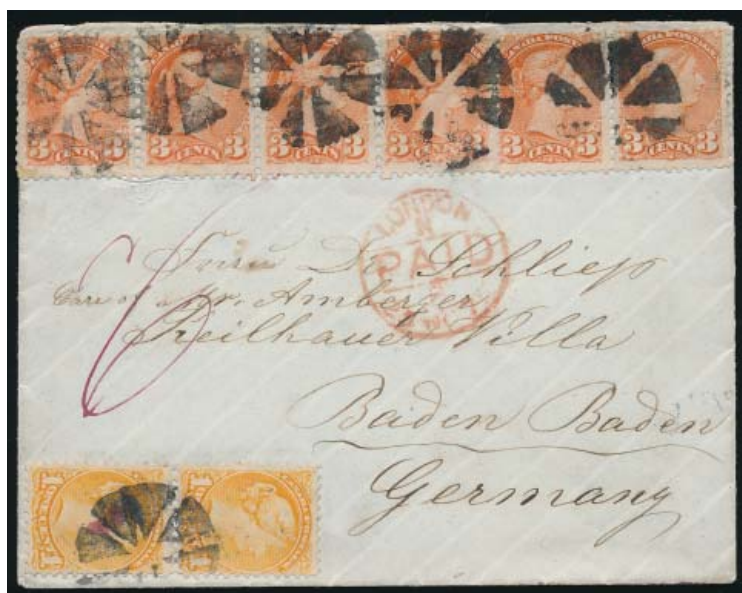 CANADA POSTAGE
3 CENTS 3 3 CENTS 3 3 CENTS 3 3 CENTS 3 3 CENTS 3 3 CENTS 3
LONDON
PAID
6
Dr Schliep
Care of Mr. Amberger
Keilhauer Villa
Baden Baden
Germany